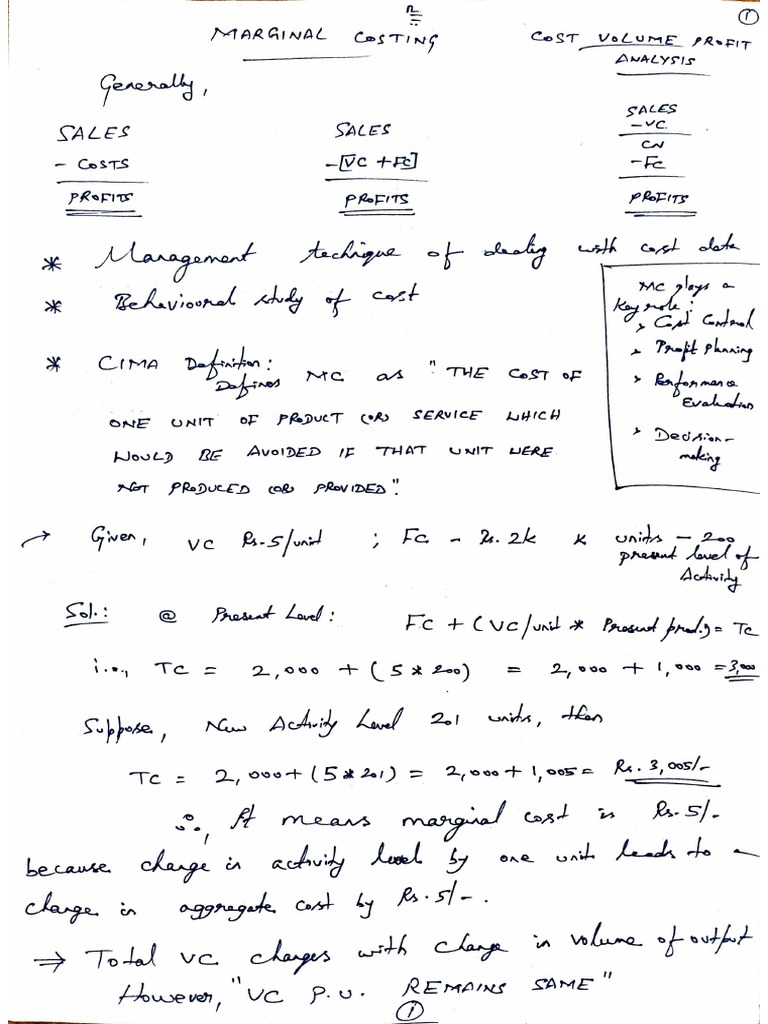 ①
MARGINAL COSTING
COST VOLUME PROFIT
ANALYSIS
Generally,
SALES
- COSTS
PROFITS
SALES
-[VC + FC]
PROFITS
SALES
- VC
CN
- FC
PROFITS
* Management technique of dealing with cost data
* Behavioural study of cost
MC plays a
Key role:
> Cost Control
> Profit Planning
> Performance
Evaluation
> Decision-
making
* CIMA Definition:
Defines MC as "THE COST OF
ONE UNIT OF PRODUCT (OR) SERVICE WHICH
WOULD BE AVOIDED IF THAT UNIT WERE
NOT PRODUCED (OR) PROVIDED".
→ Given, VC Rs.5/unit ; FC - Rs. 2k & units - 200
present level of
Activity
Sol.: @ Present Level: FC + (VC/unit * Present prod.) = TC
i.e., TC = 2,000 + (5 * 200) = 2,000 + 1,000 = 3,000
Suppose, New Activity Level 201 units, then
TC = 2,000 + (5 * 201) = 2,000 + 1,005 = Rs. 3,005/-
∴, It means marginal cost is Rs. 5/-
because change in activity level by one unit leads to a
change in aggregate cost by Rs. 5/-.
⇒ Total VC changes with change in volume of output
However, "VC P.U. REMAINS SAME"
①